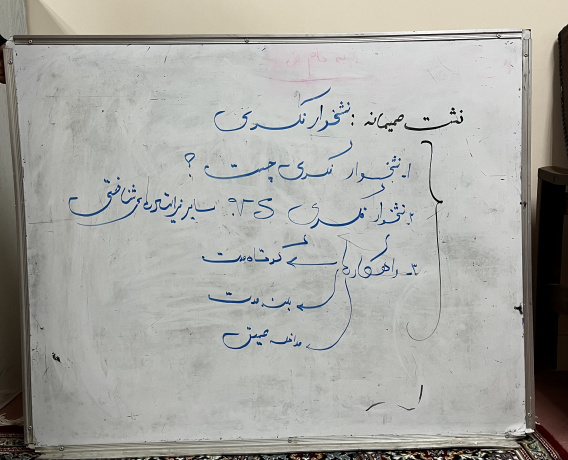 نشست صمیمانه : نشخوار فکری
۱- نشخوار فکری چیست ؟
۲- نشخوار فکری VS؟ سایر فرایندهای شناختی
۳- راهکارها
کوتاه مدت
بلند مدت
مداخله عمیق